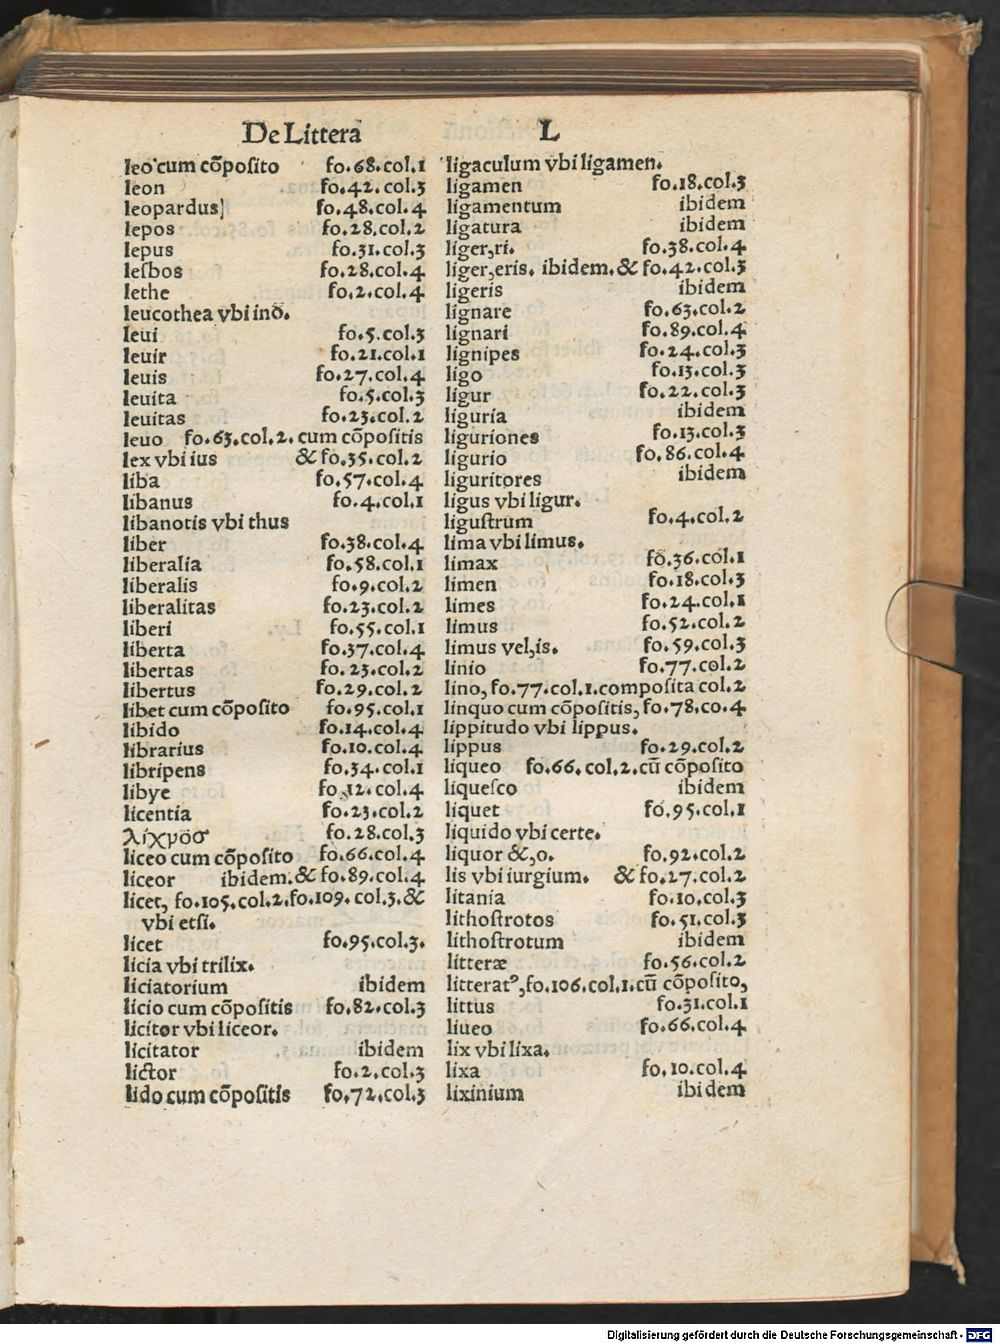 De Littera L
leo cum cõpoſito fo.68.col.1
leon fo.42.col.3
leopardus fo.48.col.4
lepos fo.28.col.2
lepus fo.31.col.3
leſbos fo.28.col.4
lethe fo.2.col.4
leucothea vbi inõ.
leui fo.5.col.3
leuir fo.21.col.1
leuis fo.27.col.4
leuita fo.5.col.3
leuitas fo.23.col.2
leuo fo.63.col.2.cum cõpoſitis
lex vbi ius & fo.35.col.2
liba fo.57.col.4
libanus fo.4.col.1
libanotis vbi thus
liber fo.38.col.4
liberalia fo.58.col.1
liberalis fo.9.col.2
liberalitas fo.23.col.2
liberi fo.55.col.1
liberta fo.37.col.4
libertas fo.23.col.2
libertus fo.29.col.2
libet cum cõpoſito fo.95.col.1
libido fo.14.col.4
librarius fo.10.col.4
libripens fo.34.col.1
libye fo.12.col.4
licentia fo.23.col.2
λίχνοσ fo.28.col.3
liceo cum cõpoſito fo.66.col.4
liceor ibidem.& fo.89.col.4
licet, fo.105.col.2.fo.109.col.3.&
vbi etſi.
licet fo.95.col.3.
licia vbi trilix.
liciatorium ibidem
licio cum cõpoſitis fo.82.col.3
licitor vbi liceor.
licitator ibidem
lictor fo.2.col.3
lido cum cõpoſitis fo.72.col.3
ligaculum vbi ligamen.
ligamen fo.18.col.3
ligamentum ibidem
ligatura ibidem
liger,ri. fo.38.col.4
liger,eris. ibidem.& fo.42.col.3
ligeris ibidem
lignare fo.63.col.2
lignari fo.89.col.4
lignipes fo.24.col.3
ligo fo.13.col.3
ligur fo.22.col.3
liguria ibidem
liguriones fo.13.col.3
ligurio fo.86.col.4
liguritores ibidem
ligus vbi ligur.
liguſtrum fo.4.col.2
lima vbi limus.
limax fo.36.col.1
limen fo.18.col.3
limes fo.24.col.1
limus fo.52.col.2
limus vel,is. fo.59.col.3
linio fo.77.col.2
lino, fo.77.col.1.compoſita col.2
linquo cum cõpoſitis, fo.78.co.4
lippitudo vbi lippus.
lippus fo.29.col.2
liqueo fo.66.col.2.cũ cõpoſito
liqueſco ibidem
liquet fo.95.col.1
liquido vbi certe.
liquor &,o. fo.92.col.2
lis vbi iurgium. & fo.27.col.2
litania fo.10.col.3
lithoſtrotos fo.51.col.3
lithoſtrotum ibidem
litteræ fo.56.col.2
litteratꝰ,fo.106.col.1.cũ cõpoſito,
littus fo.31.col.1
liueo fo.66.col.4
lix vbi lixa.
lixa fo.10.col.4
lixinium ibidem
Digitalisierung gefördert durch die Deutsche Forschungsgemeinschaft - DFG